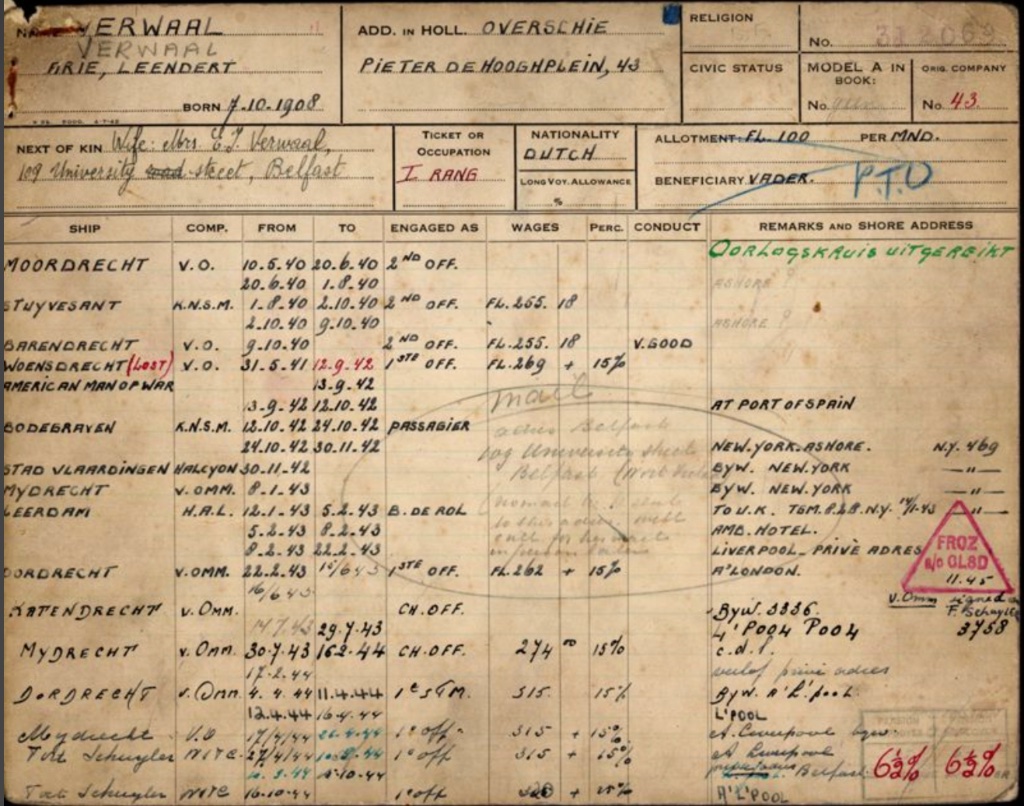 NAME VERWAAL
VERWAAL
ARIE, LEENDERT
BORN 7.10.1908
ADD. IN HOLL. OVERSCHIE
PIETER DE HOOGHPLEIN, 43
RELIGION
No.
CIVIC STATUS
MODEL A IN BOOK:
No.
ORIG. COMPANY
No. 43.
NEXT OF KIN Wife: Mrs. E.J. Verwaal,
109 University road street, Belfast
TICKET OR OCCUPATION
I RANG
NATIONALITY
DUTCH
LONG VOY. ALLOWANCE
%
ALLOTMENT FL. 100 PER MND.
BENEFICIARY VADER. P.T.O
SHIP COMP. FROM TO ENGAGED AS WAGES PERC. CONDUCT REMARKS AND SHORE ADDRESS
OORLOGSKRUIS UITGEREIKT
MOORDRECHT V.O. 10.5.40 20.6.40 2ND OFF.
20.6.40 1.8.40 ASHORE ?
STUYVESANT K.N.S.M. 1.8.40 2.10.40 2ND OFF. FL.255. 18
2.10.40 9.10.40 ASHORE ?
BARENDRECHT V.O. 9.10.40 2ND OFF. FL.255. 18 V.GOOD
WOENSDRECHT (LOST) V.O. 31.5.41 12.9.42 1STE OFF. FL.269 + 15%
AMERICAN MAN OF WAR 13.9.42
13.9.42 12.10.42 AT PORT OF SPAIN
mail
BODEGRAVEN K.N.S.M. 12.10.42 24.10.42 PASSAGIER
adres Belfast
24.10.42 30.11.42 109 University street NEW.YORK.ASHORE. N.Y. 469
STAD VLAARDINGEN HALCYON 30.11.42 Belfast BYW. NEW.YORK —"—
MYDRECHT V.OMM. 8.1.43 BYW. NEW.YORK —"—
LEERDAM H.A.L. 12.1.43 5.2.43 B.DE ROL TO U.K. N.Y. —"—
5.2.43 8.2.43 AMB. HOTEL.
8.2.43 22.2.43 LIVERPOOL - PRIVÈ ADRES
FROZ
a/c GLSD
11.45
DORDRECHT V.OMM. 22.2.43 10/6 43 1STE OFF. FL.262 + 15% A'LONDON.
16/6 43
V.Omm signed
KATENDRECHT V.OMM. CH.OFF. BYW. 3336.
29.7.43 L'POOL POOL 3758
MYDRECHT V.OMM. 30.7.43 16.2.44 CH.OFF. 274 00 15% C.D.I.
17.2.44 verlof privé adres
DORDRECHT V.OMM 4.4.44 11.4.44 315 15% BYW. A'L'POOL
12.4.44 16.4.44 L'POOL
Mydrecht V.O 17/4/44 26.4.44 1e off 315 + 15% A. Liverpool byw.
Fort Schuyler 27/4/44 1e off 315 + 15% A Liverpool
5.10.44 Belfast 6½% 6½%
Fort Schuyler 16.10.44 1e off A'L'POOL